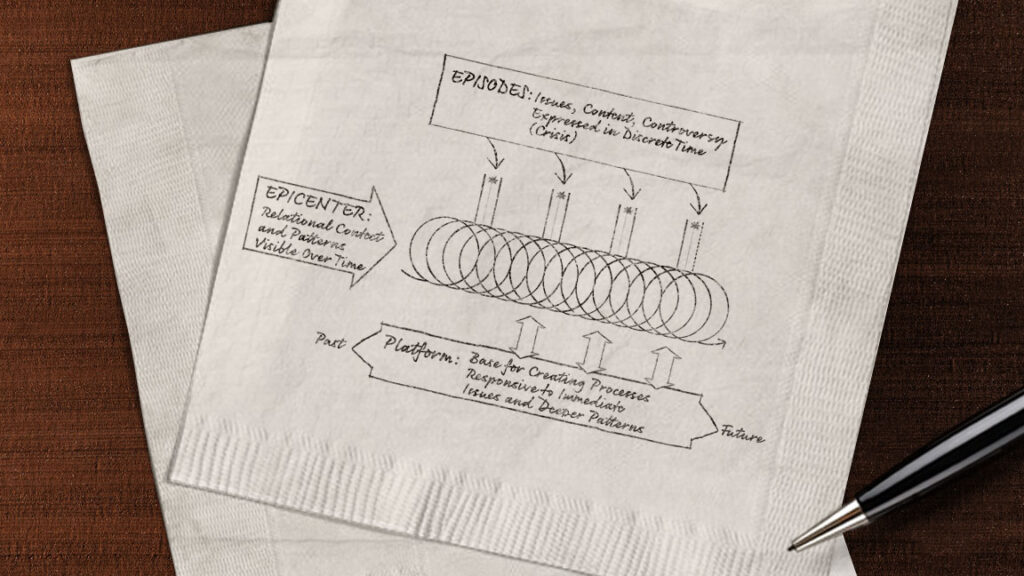 EPISODES: Issues, Content, Controversy
Expressed in Discrete Time
(Crisis)
* * * *
EPICENTER:
Relational Context
and Patterns
Visible Over Time
Past
Platform: Base for Creating Processes
Responsive to Immediate
Issues and Deeper Patterns
Future